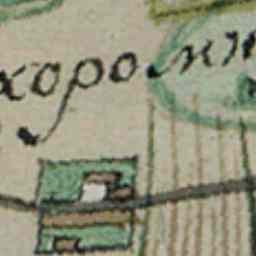 хороми